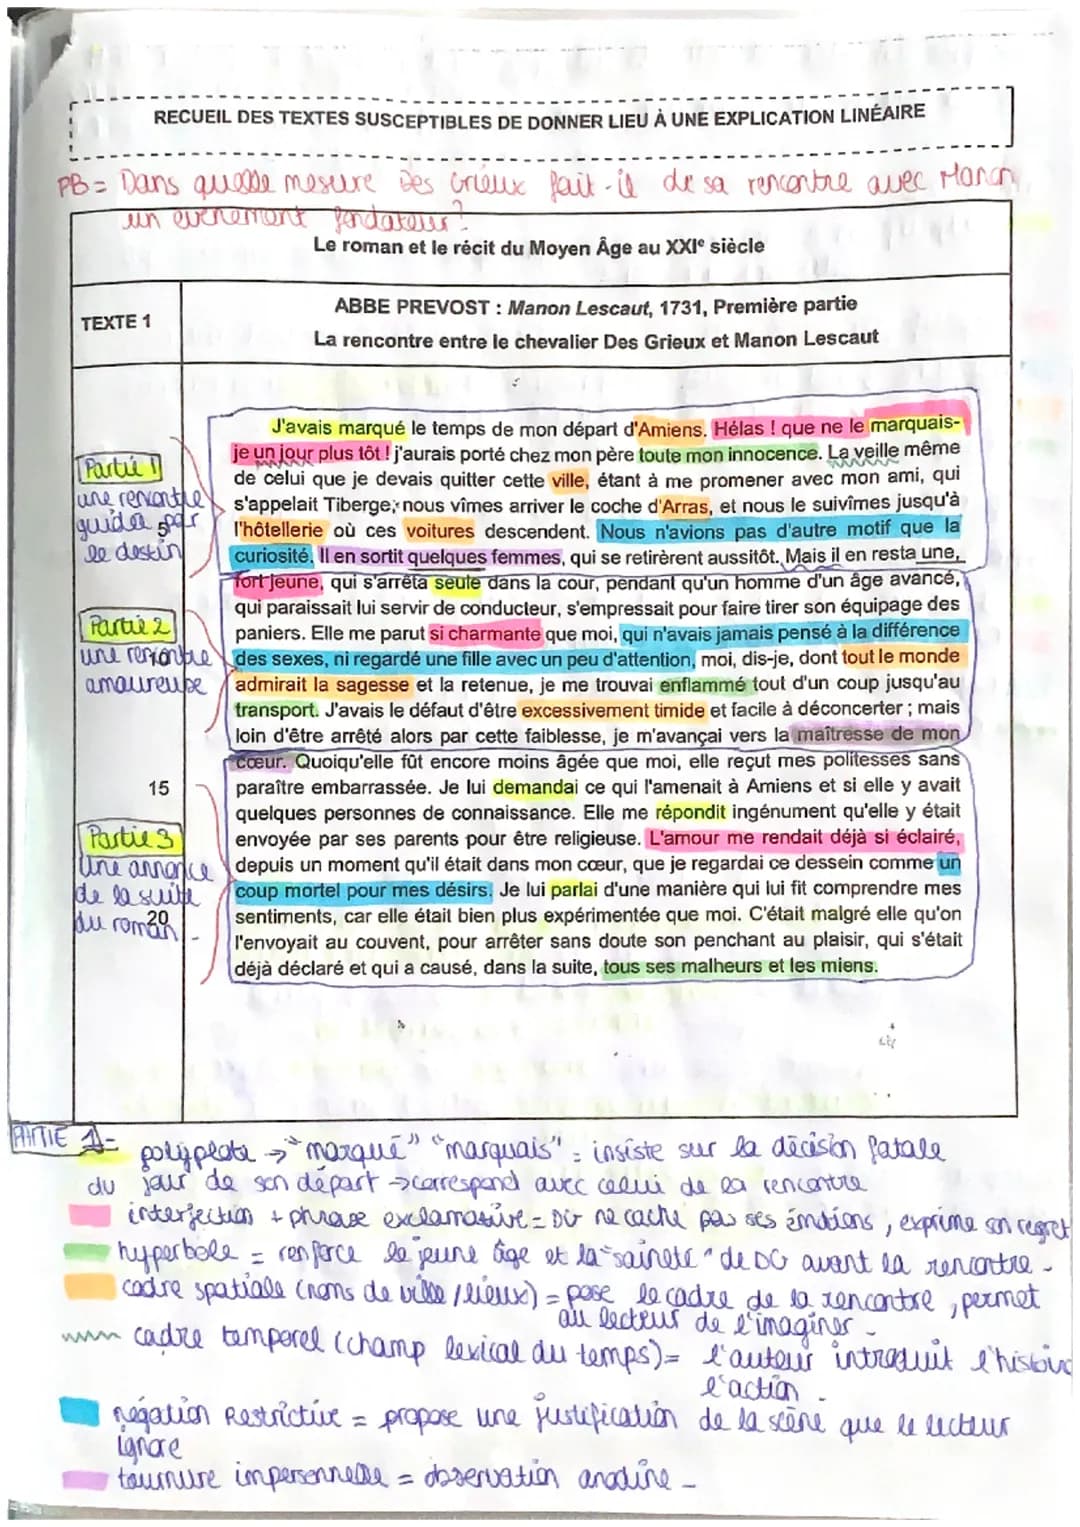 RECUEIL DES TEXTES SUSCEPTIBLES DE DONNER LIEU À UNE EXPLICATION LINÉAIRE
PB = Dans quelle mesure Des Grieux fait-il de sa rencontre avec Manon
un évènement fondateur?
Le roman et le récit du Moyen Âge au XXIe siècle
TEXTE 1
ABBE PREVOST : Manon Lescaut, 1731, Première partie
La rencontre entre le chevalier Des Grieux et Manon Lescaut
J'avais marqué le temps de mon départ d'Amiens. Hélas ! que ne le marquais-
je un jour plus tôt ! j'aurais porté chez mon père toute mon innocence. La veille même
de celui que je devais quitter cette ville, étant à me promener avec mon ami, qui
s'appelait Tiberge, nous vîmes arriver le coche d'Arras, et nous le suivîmes jusqu'à
l'hôtellerie où ces voitures descendent. Nous n'avions pas d'autre motif que la
curiosité. Il en sortit quelques femmes, qui se retirèrent aussitôt. Mais il en resta une,
fort jeune, qui s'arrêta seule dans la cour, pendant qu'un homme d'un âge avancé,
qui paraissait lui servir de conducteur, s'empressait pour faire tirer son équipage des
paniers. Elle me parut si charmante que moi, qui n'avais jamais pensé à la différence
des sexes, ni regardé une fille avec un peu d'attention, moi, dis-je, dont tout le monde
admirait la sagesse et la retenue, je me trouvai enflammé tout d'un coup jusqu'au
transport. J'avais le défaut d'être excessivement timide et facile à déconcerter ; mais
loin d'être arrêté alors par cette faiblesse, je m'avançai vers la maîtresse de mon
cœur. Quoiqu'elle fût encore moins âgée que moi, elle reçut mes politesses sans
paraître embarrassée. Je lui demandai ce qui l'amenait à Amiens et si elle y avait
quelques personnes de connaissance. Elle me répondit ingénument qu'elle y était
envoyée par ses parents pour être religieuse. L'amour me rendait déjà si éclairé,
depuis un moment qu'il était dans mon cœur, que je regardai ce dessein comme un
coup mortel pour mes désirs. Je lui parlai d'une manière qui lui fit comprendre mes
sentiments, car elle était bien plus expérimentée que moi. C'était malgré elle qu'on
l'envoyait au couvent, pour arrêter sans doute son penchant au plaisir, qui s'était
déjà déclaré et qui a causé, dans la suite, tous ses malheurs et les miens.
Partie 1
une rencontre
guidée par
5
le destin
Partie 2
une rencontre
amoureuse
15
Partie 3
Une annonce
de la suite
du roman
20
PARTIE 1 =
polyplote → "marqué" "marquais" = insiste sur la décision fatale
du jour de son départ → correspond avec celui de la rencontre
interjection + phrase exclamative = DG ne cache pas ses émotions, exprime son regret
hyperbole = renforce le jeune âge et la "sainete" de DG avant la rencontre -
cadre spatiale (noms de ville / lieux) = pose le cadre de la rencontre, permet
au lecteur de l'imaginer -
cadre temporel (champ lexical du temps) = l'auteur introduit l'histoire
l'action -
négation Restrictive = propose une justification de la scène que le lecteur
ignore
tournure impersonnelle = observation anodine -